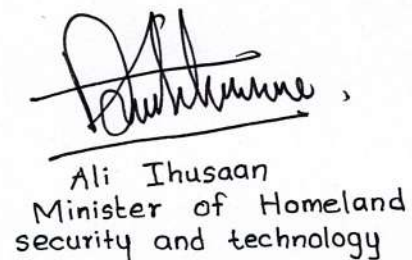 Ali Ihusaan
Minister of Homeland
security and technology